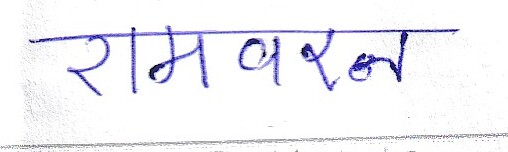 रामवरन